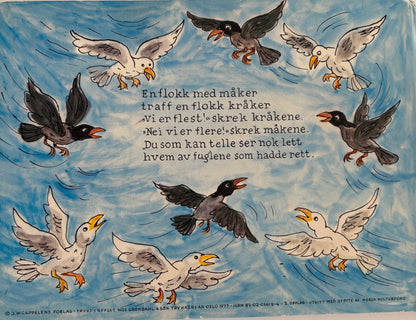 En flokk med måker
traff en flokk kråker
»Vi er flest!« skrek kråkene.
»Nei vi er flere!« skrek måkene.
Du som kan telle ser nok lett
hvem av fuglene som hadde rett.
© J.W. CAPPELENS FORLAG - TRYKT I OFFSET HOS GRØNDAHL & SØN TRYKKERI AS OSLO 1977 - ISBN - 2. OPPLAG - UTGITT MED STØTTE AV NORSK KULTURFOND